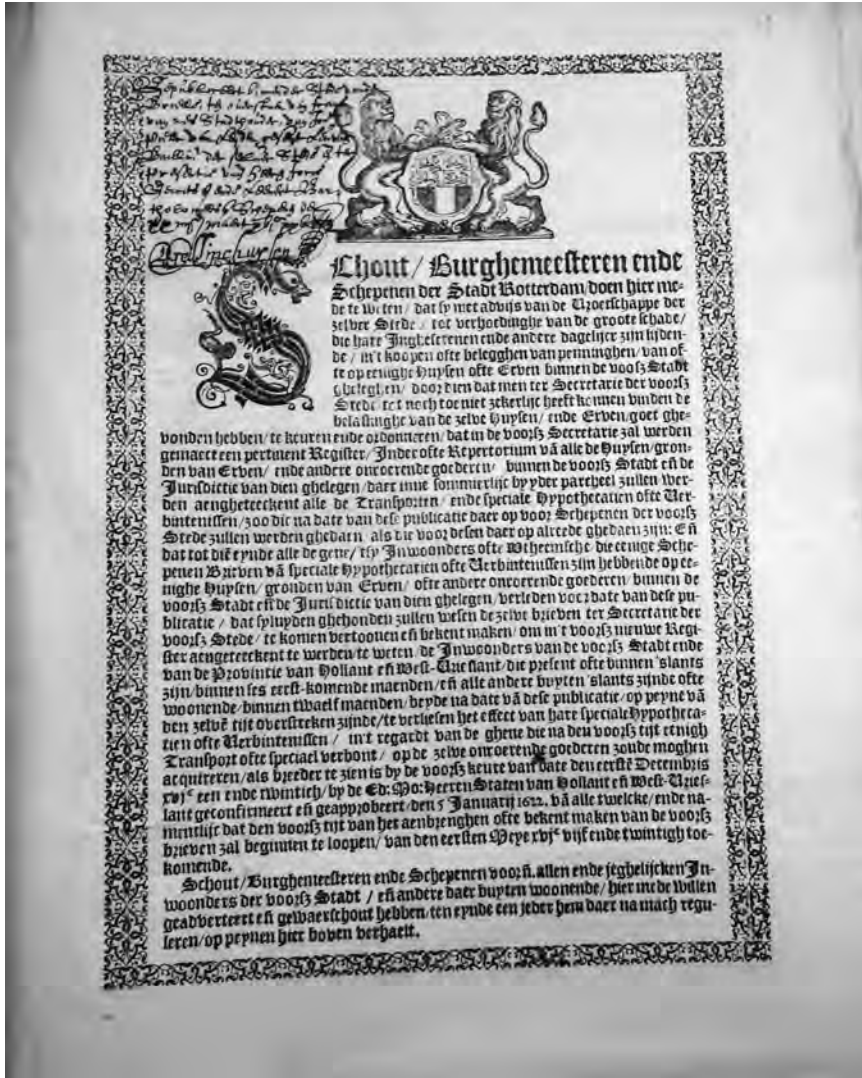 SChout / Burghemeesteren ende
Schepenen der Stadt Rotterdam / doen hier me-
de te weten / dat sy met advijs van de Vroetschappe der
zelver Stede / tot verhoedinghe van de groote schade /
die hare Inghesetenen ende andere dagelijcx zijn lijden-
de / in't koopen ofte belegghen van penninghen / van of-
te op eenighe Huysen ofte Erven binnen de voorsz Stadt
ghelegen / door dien dat men ter Secretarie der voorsz
Stede tot noch toe niet zekerlijc heeft kennen vinden de
belastinghe van de zelve Huysen / ende Erven / goet ghe-
vonden hebben / te keuren ende ordonneren / dat in de voorsz Secretarie zal werden
gemaect een pertinent Register / Index ofte Repertorium vā alle de Huysen / gron-
den van Erven / ende andere onroerende goederen / binnen de voorsz Stadt eñ de
Jurisdictie van dien ghelegen / daer inne sommierlijc by yder parcheel zullen wer-
den aengheteeckent alle de Transporten / ende speciale Hypothecatien ofte Ver-
bintenissen / zoo die na date van dese publicatie daer op voor Schepenen der voorsz
Stede zullen werden ghedaen / als die voor desen daer op alreede ghedaen zijn: Eñ
dat tot diē eynde alle de gene / t'sy Inwoonders ofte Wtheemsche / die eenige Sche-
penen Brieven vā speciale Hypothecatien ofte Verbintenissen zijn hebbende op ee-
nighe Huysen / gronden van Erven / ofte andere onroerende goederen / binnen de
voorsz Stadt eñ de Jurisdictie van dien ghelegen / verleden voor date van dese pu-
blicatie / dat sy luyden ghehouden zullen wesen de zelve brieven ter Secretarie der
voorsz Stede / te komen vertoonen eñ bekent maken / om in't voorsz nieuwe Regi-
ster aengeteeckent te werden / te weten / de Inwoonders van de voorsz Stadt ende
van de Provintie van Hollant eñ West-Vrieslant / die present ofte binnen 'slants
zijn / binnen ses eerst-komende maenden / eñ alle andere buyten 'slants zijnde ofte
woonende / binnen twaelf maenden / beyde na date vā dese publicatie / op peyne vā
den zelvē tijt overstreken zijnde / te verliesen het effect van hare speciale Hypotheca-
tien ofte Verbintenissen / in't regardt van de ghene die na den voorsz tijt eenigh
Transport ofte speciael verbont / op de zelve onroerende goederen zoude moghen
acquireren / als breeder te zien is by de voorsz keure van date den eerstē Decembris
xvjᶜ een ende twintich / by de Ed: Mo: Heeren Staten van Hollant eñ West-Vries-
lant geconfirmeert eñ geapprobeert / den 5 Januarij 1622. vā alle twelcke / ende na-
mentlijc dat den voorsz tijt van het aenbrenghen ofte bekent maken van de voorsz
brieven zal beginnen te loopen / van den eersten Meye xvjᶜ vijf ende twintigh toe-
komende.
Schout / Burghemeesteren ende Schepenen voorñ. allen ende jeghelijcken In-
woonders der voorsz Stadt / eñ andere daer buyten woonende / hier mede willen
geadverteert eñ gewaerschout hebben / ten eynde een jeder hem daer na mach regu-
leren / op peynen hier boven verhaelt.